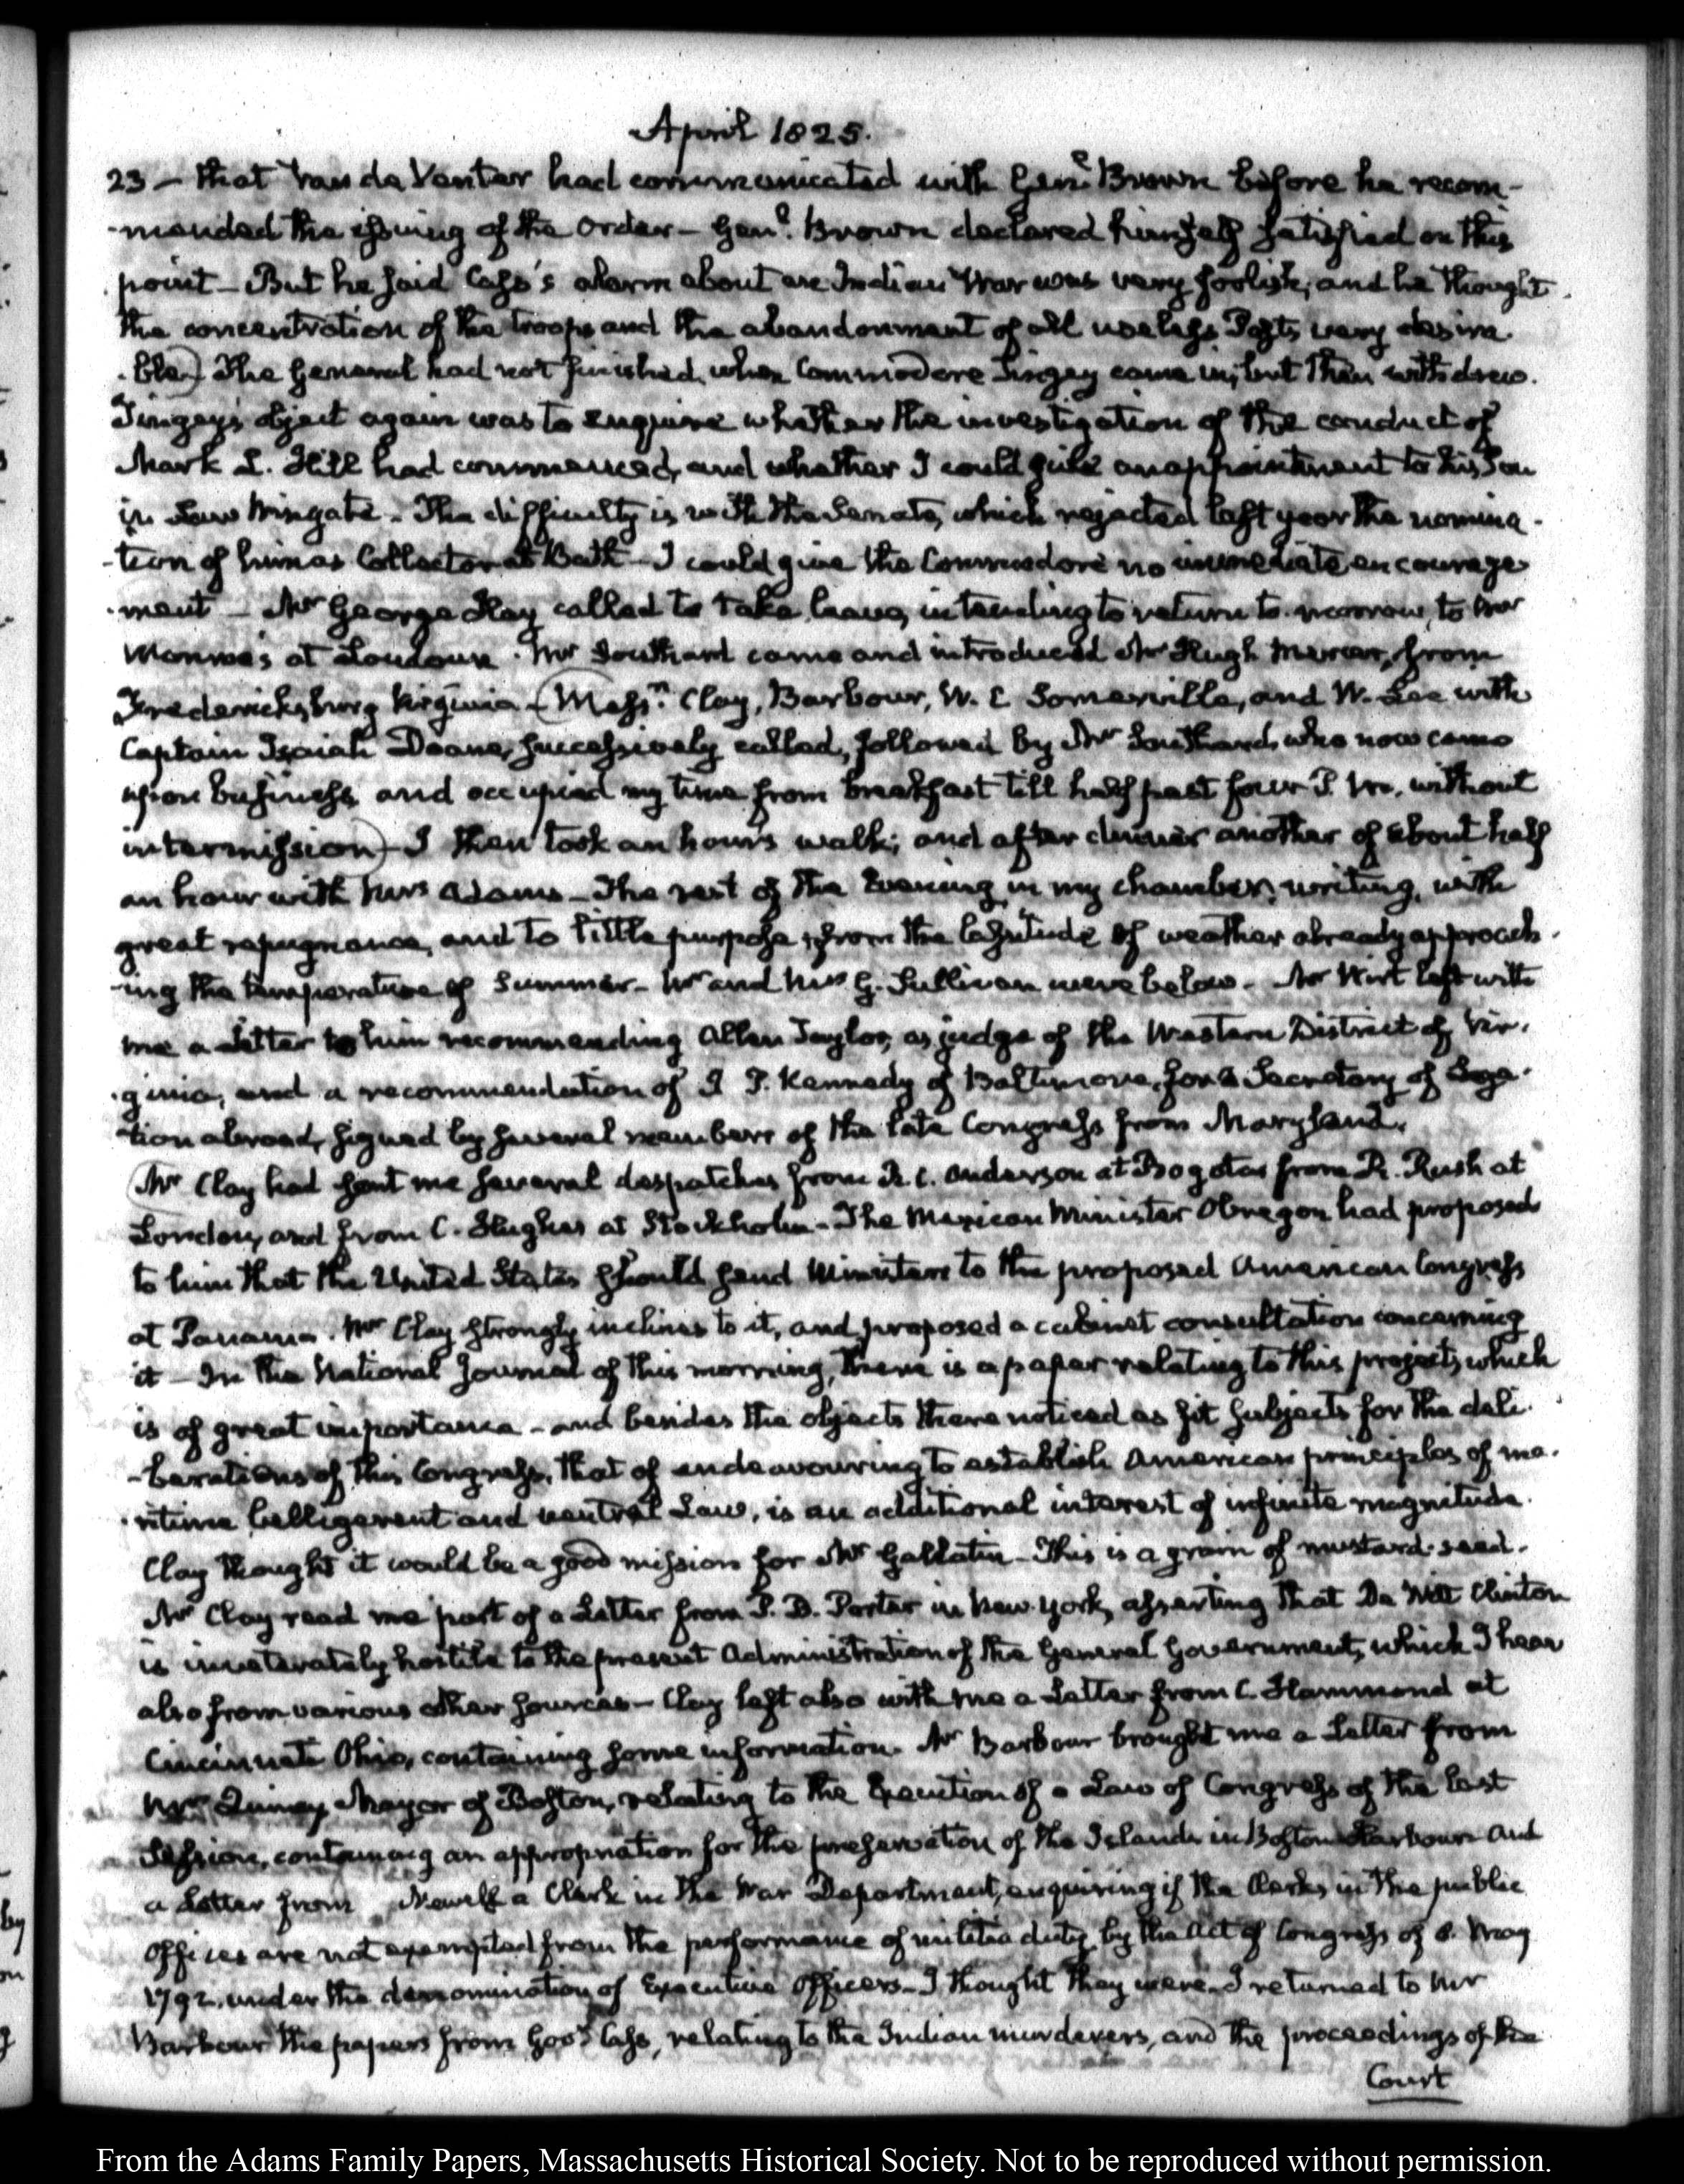 April 1825.
23 – that Van de Venter had communicated with Genl. Brown before he recom-
-mended the issuing of the order – Genl. Brown declared himself satisfied on this
point – But he said Cass's alarm about an Indian War was very foolish; and he thought
the concentration of the troops and the abandonment of all useless Posts very desira-
-ble.) The General had not finished, when Commodore Tingey came in; but then withdrew.
Tingey's object again was to enquire whether the investigation of the conduct of
Mark L. Hill had commenced, and whether I could give an appointment to his Son
in Law Wingate – The difficulty is with the Senate, which rejected last year the nomina-
-tion of him as Collector at Bath – I could give the Commodore no immediate encourage-
-ment – Mr George Hay called to take leave, intending to return to-morrow, to Mr
Monroe's at Loudoun. Mr Southard came and introduced Mr Hugh Mercer, from
Fredericksburg Virginia – (Messrs. Clay, Barbour, W. C. Somerville, and W. Lee with
Captain Isaiah Doane, successively called, followed by Mr Southard, who now came
upon business, and occupied my time from breakfast till half past four P.M. without
intermission) – I then took an hour's walk; and after dinner another of about half
an hour with Mrs Adams – The rest of the Evening in my chamber, writing, with
great repugnance, and to little purpose, from the lassitude of weather already approach-
-ing the temperature of Summer – Mr and Mrs G. Sullivan were below – Mr Wirt left with
me a Letter to him recommending Allen Taylor, as judge of the Western District of Vir-
-ginia, and a recommendation of J. P. Kennedy of Baltimore, for a Secretary of Lega-
-tion abroad, signed by several members of the late Congress from Maryland.
(Mr Clay had sent me several despatches from R. C. Anderson at Bogota from R. Rush at
London, and from C. Hughes at Stockholm – The Mexican Minister Obregon had proposed
to him that the United States should send Ministers to the proposed American Congress
at Panama. Mr Clay strongly inclines to it, and proposed a cabinet consultation concerning
it – In the National Journal of this morning, there is a paper relating to this project, which
is of great importance – and besides the objects there noticed as fit subjects for the deli-
-berations of this Congress, that of endeavouring to establish American principles of ma-
-ritime, belligerent and neutral Law, is an additional interest of infinite magnitude.
Clay thought it would be a good mission for Mr Gallatin – This is a grain of mustard-seed.
Mr Clay read me part of a Letter from P. B. Porter in New-York, asserting that De Witt Clinton
is inveterately hostile to the present Administration of the General Government, which I hear
also from various other sources – Clay left also with me a Letter from C. Hammond at
Cincinnati Ohio, containing some information. Mr Barbour brought me a Letter from
Mr Quincy Mayor of Boston, relating to the Execution of a Law of Congress of the last
Session, containing an appropriation for the preservation of the Islands in Boston Harbour and
a Letter from Newell a Clerk in the War Department, enquiring if the Clerks in the public
Offices are not exempted from the performance of militia duty by the Act of Congress of 8. May
1792. under the denomination of Executive Officers – I thought they were – I returned to Mr
Barbour the papers from Govr. Cass, relating to the Indian murderers, and the proceedings of the
Court
From the Adams Family Papers, Massachusetts Historical Society. Not to be reproduced without permission.